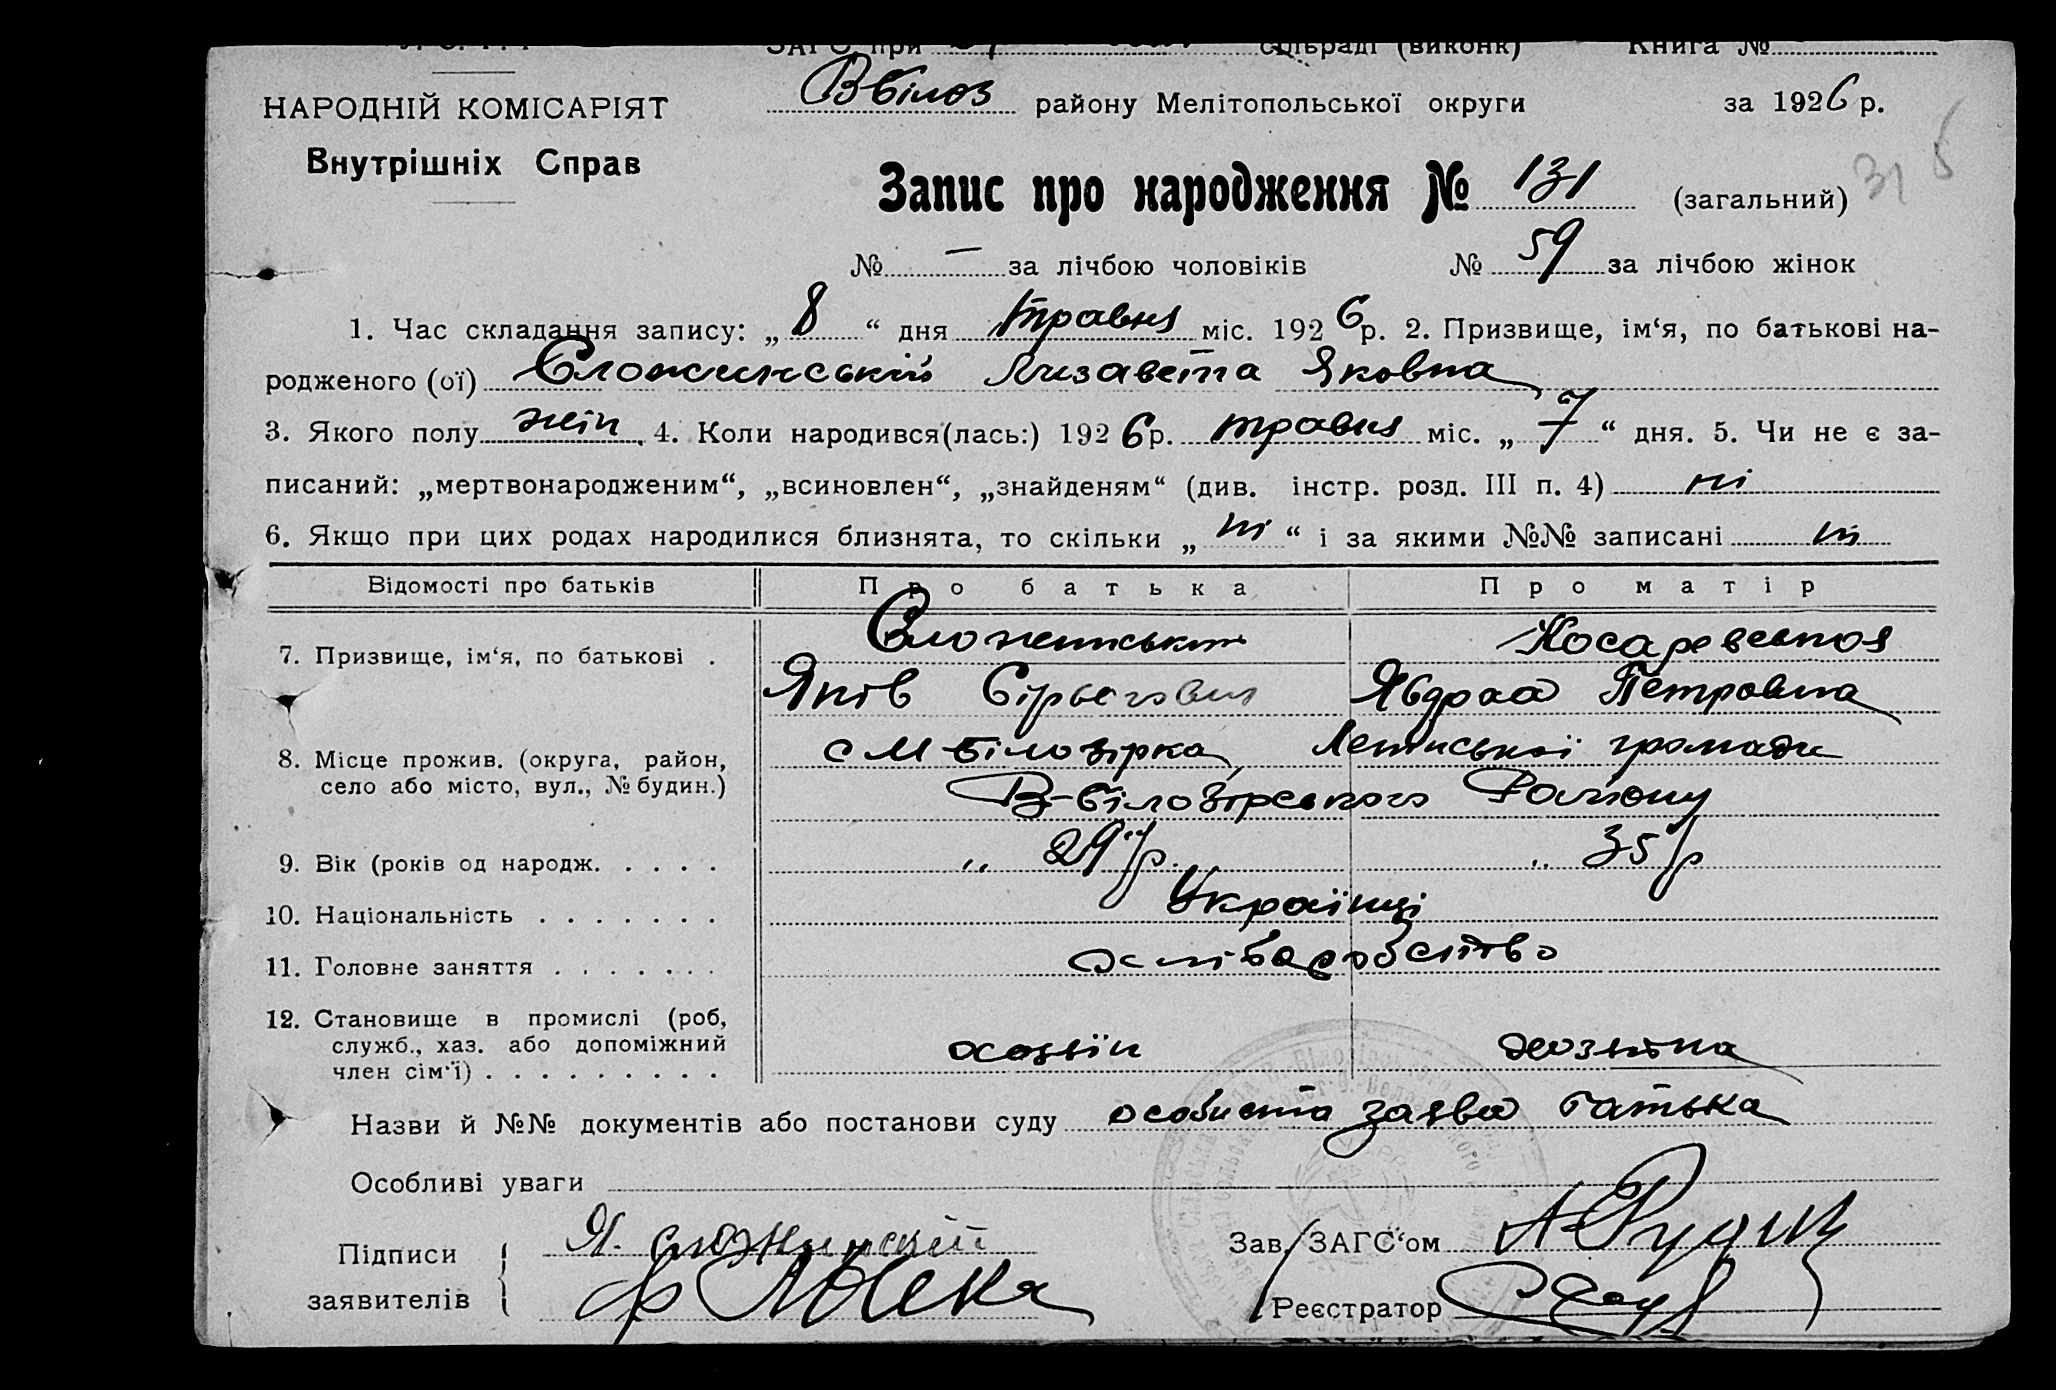 ЗАГС при сільраді (виконк) Книга №
НАРОДНІЙ КОМІСАРІЯТ
Внутрішніх Справ
Вбілоз району Мелітопольської округи за 1926 р.
Запис про народження № 131 (загальний) 31
№ — за лічбою чоловіків № 59 за лічбою жінок
1. Час складання запису: „8“ дня травня міс. 1926 р. 2. Призвище, ім‘я, по батькові на-
родженого (ої) Сложинський Лизавета Яковна
3. Якого полу жін. 4. Коли народився(лась:) 1926 р. травня міс. „7“ дня. 5. Чи не є за-
писаний: „мертвонародженим“, „всиновлен“, „знайденям“ (див. інстр. розд. III п. 4) ні
6. Якщо при цих родах народилися близнята, то скільки „ні“ і за якими №№ записані ні
Відомості про батьків Про батька Про матір
7. Призвище, ім‘я, по батькові .
Сложинський
Яків
Явдоха Петровна
8. Місце прожив. (округа, район,
село або місто, вул., № будин.)
с М Білозірка, громади
В-Білозірського Району
9. Вік (років од народж. . . . . „ 29 р. „ 35 р
10. Національність . . . . . . . Українці
11. Головне заняття . . . . . . . хліборобство
12. Становище в промислі (роб,
служб., хаз. або допоміжний
член сім‘ї) . . . . . . . . .
хозяїн хозяйка
Назви й №№ документів або постанови суду особиста заява батька
Особливі уваги
Підписи
заявителів
Я. сложинский
Зав. ЗАГС‘ом
Реєстратор